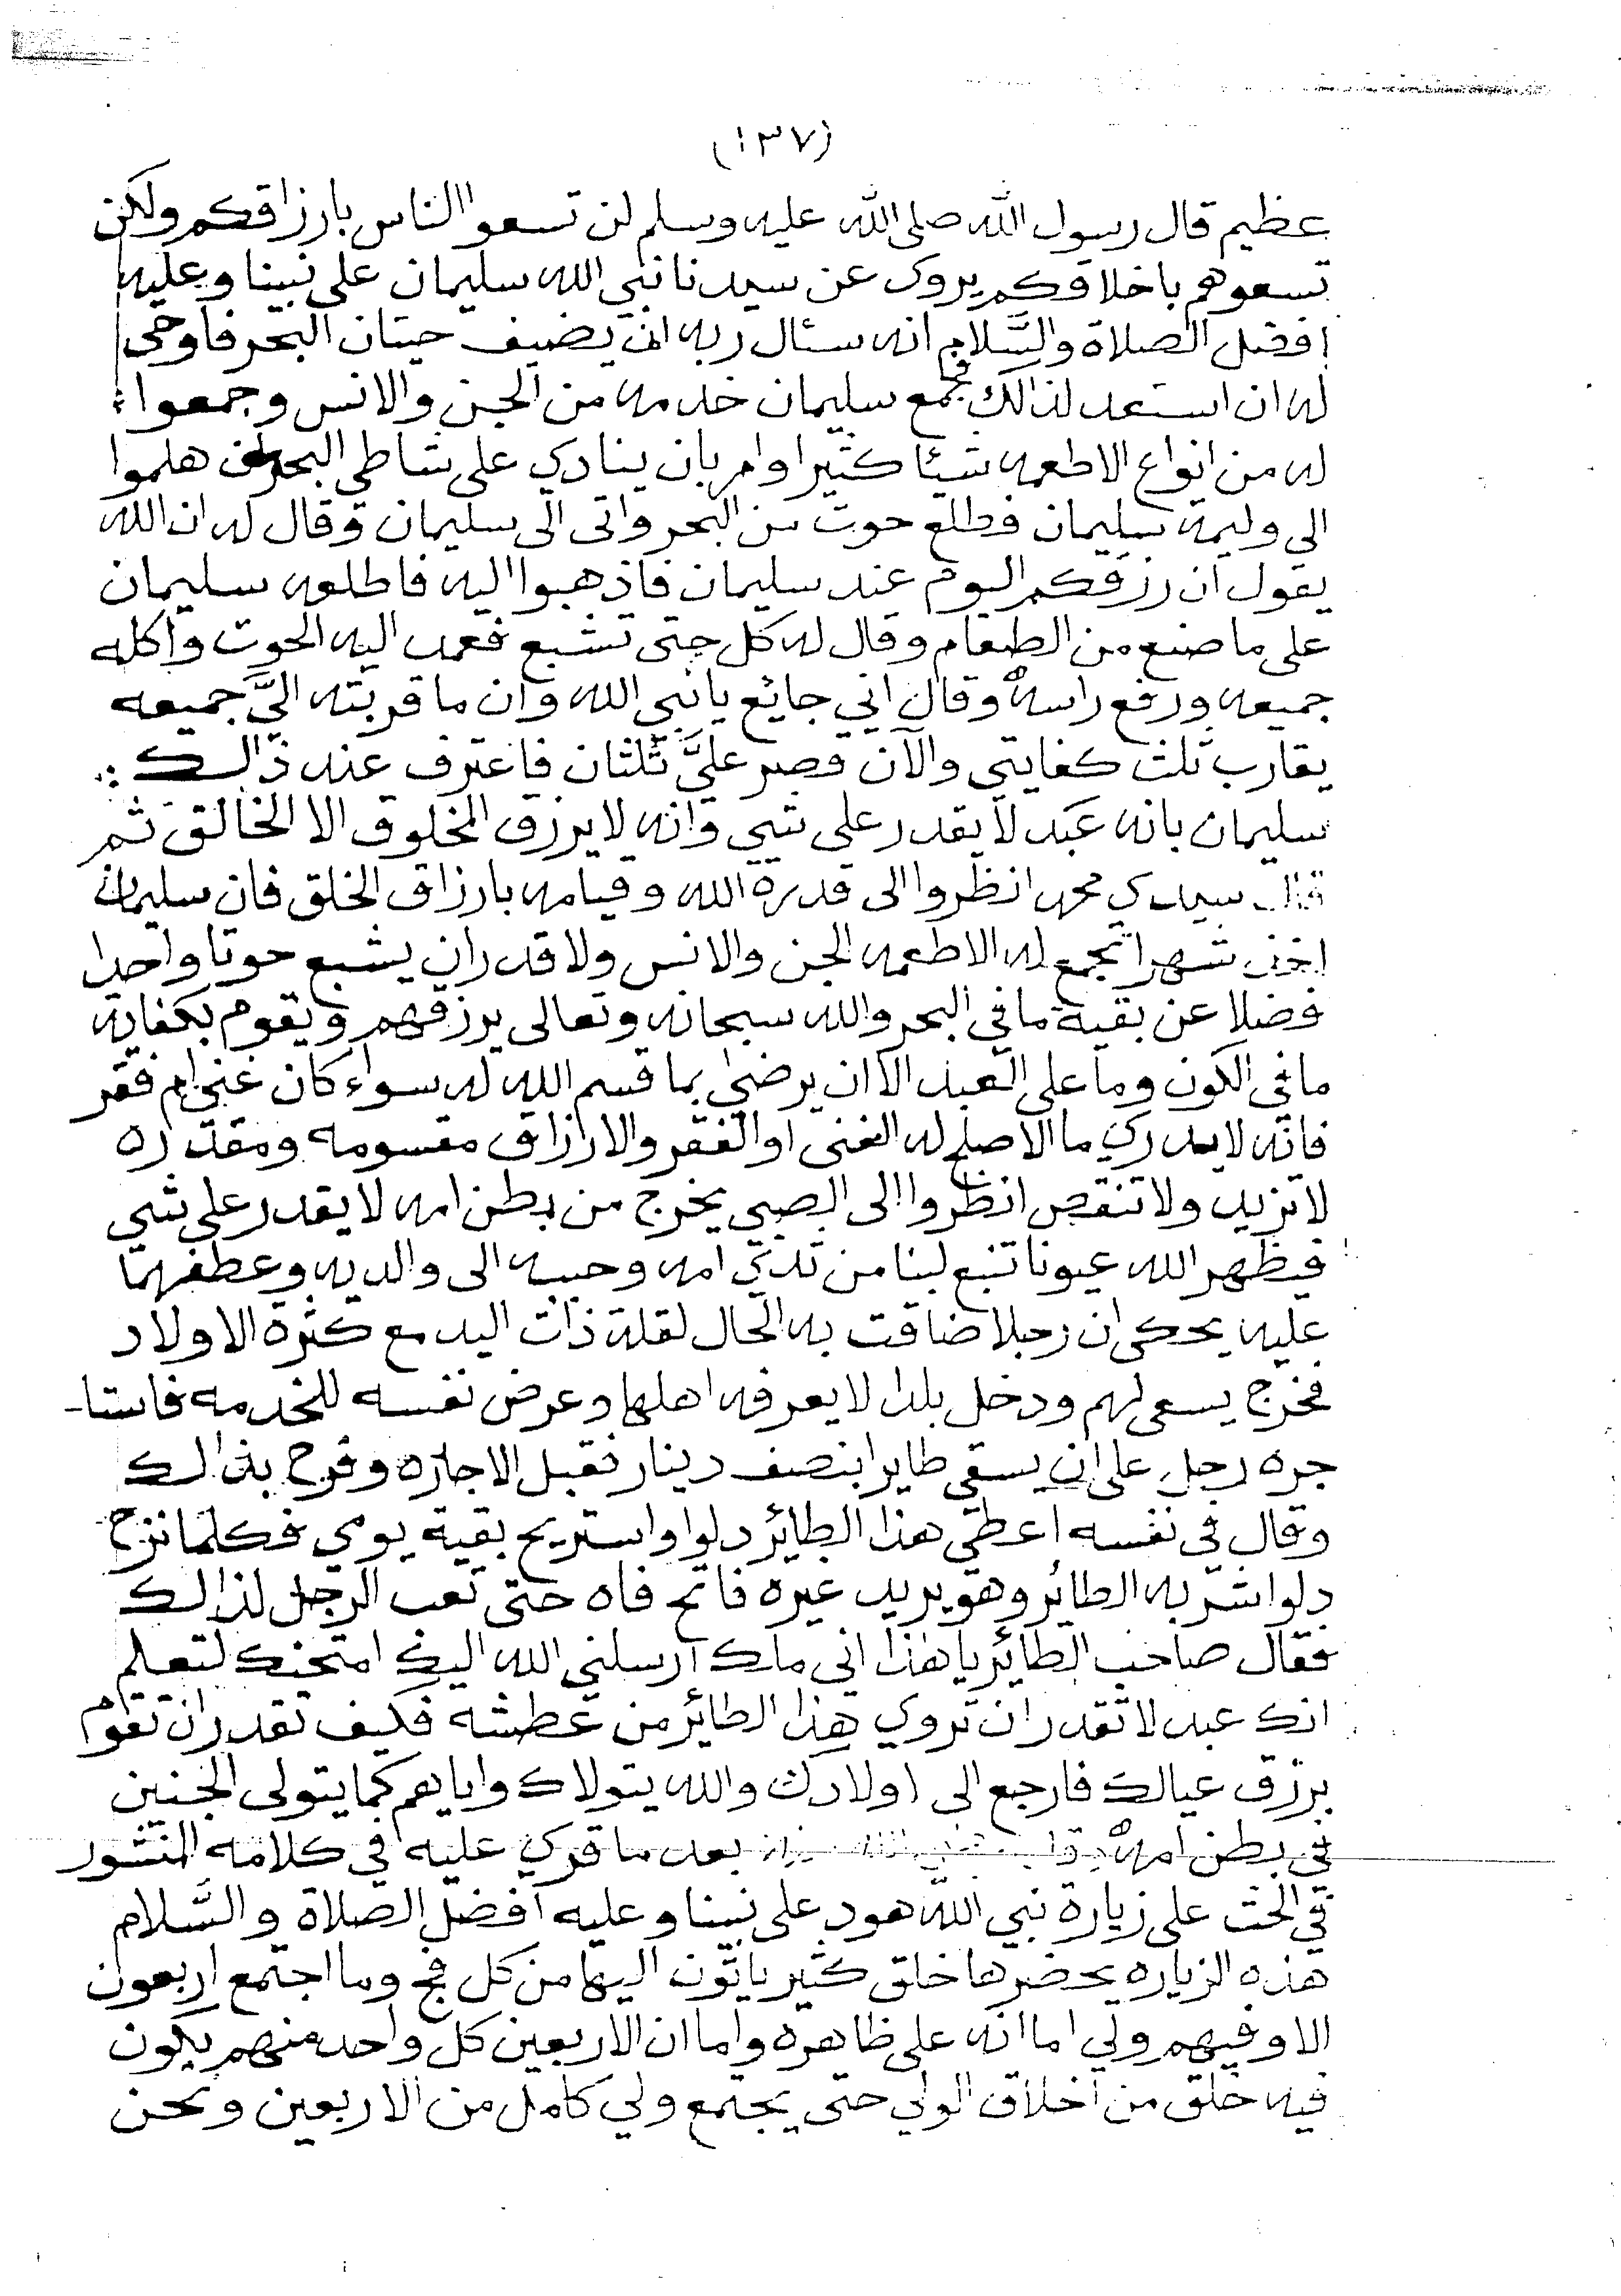 (١٣٧)
عظيم قال رسول الله صلى الله عليه وسلم لن تسعوا الناس بارزاقكم ولكن
تسعوهم باخلاقكم يروى عن سيدنا نبي الله سليمان على نبينا وعليه
افضل الصلاة والسَّلام انه سئال ربه ان يضيف حيتان البحر فاوحى
له ان استعد لذالك فجمع سليمان خدمه من الجن والانس وجمعوا
له من انواع الاطعمه شيئا كثيرا وامر بان ينادي على شاطي البحر هلموا
الى وليمة سليمان فطلع حوت من البحر واتى الى سليمان وقال له ان الله
يقول ان رزقكم اليوم عند سليمان فاذهبوا اليه فاطلعه سليمان
على ما صنع من الطعام وقال له كل حتى تشبع فعمد اليه الحوت واكله
جميعه ورفع راسه وقال اني جايع يا نبي الله وان ما قربته اليَّ جميعه
يقارب ثلث كفايتي والآن قصر عليَّ ثلثان فاعترف عند ذالك
سليمان بانه عبد لا يقدر على شي وانه لا يرزق المخلوق الا الخالق ثم
قال سيدي محمد انظروا الى قدرة الله وقيامه بارزاق الخلق فان سليمان
اخذ شهرا تجمع له الاطعمه الجن والانس ولا قدر ان يشبع حوتا واحدا
فضلا عن بقية ما في البحر والله سبحانه وتعالى يرزقهم ويقوم بكفاية
ما في الكون وما على العبد الا ان يرضى بما قسم الله له سواء كان غني ام فقر
فانه لا يدري ما الاصلح له الغنى او الفقر والارزاق مقسومه ومقدره
لا تزيد ولا تنقص انظروا الى الصبي يخرج من بطن امه لا يقدر على شي
فيظهر الله عيونا تنبع لبنا من ثدي امه وحببه الى والديه وعطفهما
عليه يحكى ان رجلا ضاقت به الحال لقلة ذات اليد مع كثرة الاولاد
فخرج يسعى لهم ودخل بلدا لا يعرفه اهلها وعرض نفسه للخدمه فاستا-
جره رجل على ان يسقي طايرا بنصف دينار فقبل الاجازه وفرح بذالك
وقال في نفسه اعطي هذا الطائر دلوا واستريح بقية يومي فكلما نزح
دلوا شربه الطائر وهو يريد غيره فاتح فاه حتى تعب الرجل لذالك
فقال صاحب الطائر يا هذا اني ملك ارسلني الله اليك امتحنك لتعلم
انك عبد لا تقدر ان تروي هذا الطائر من عطشه فكيف تقدر ان تقوم
برزق عيالك فارجع الى اولادك والله يتولاك واياهم كما يتولى الجنين
في بطن امه وقال بعد ما قري عليه في كلامه المنثور
في الحث على زيارة نبي الله هود على نبينا وعليه افضل الصلاة والسَّلام
هذه الزياره يحضرها خلق كثير ياتون اليها من كل فج وما اجتمع اربعون
الا وفيهم ولي اما انه على ظاهره واما ان الاربعين كل واحد منهم يكون
فيه خلق من اخلاق الولي حتى يجتمع ولي كامل من الاربعين ونحن